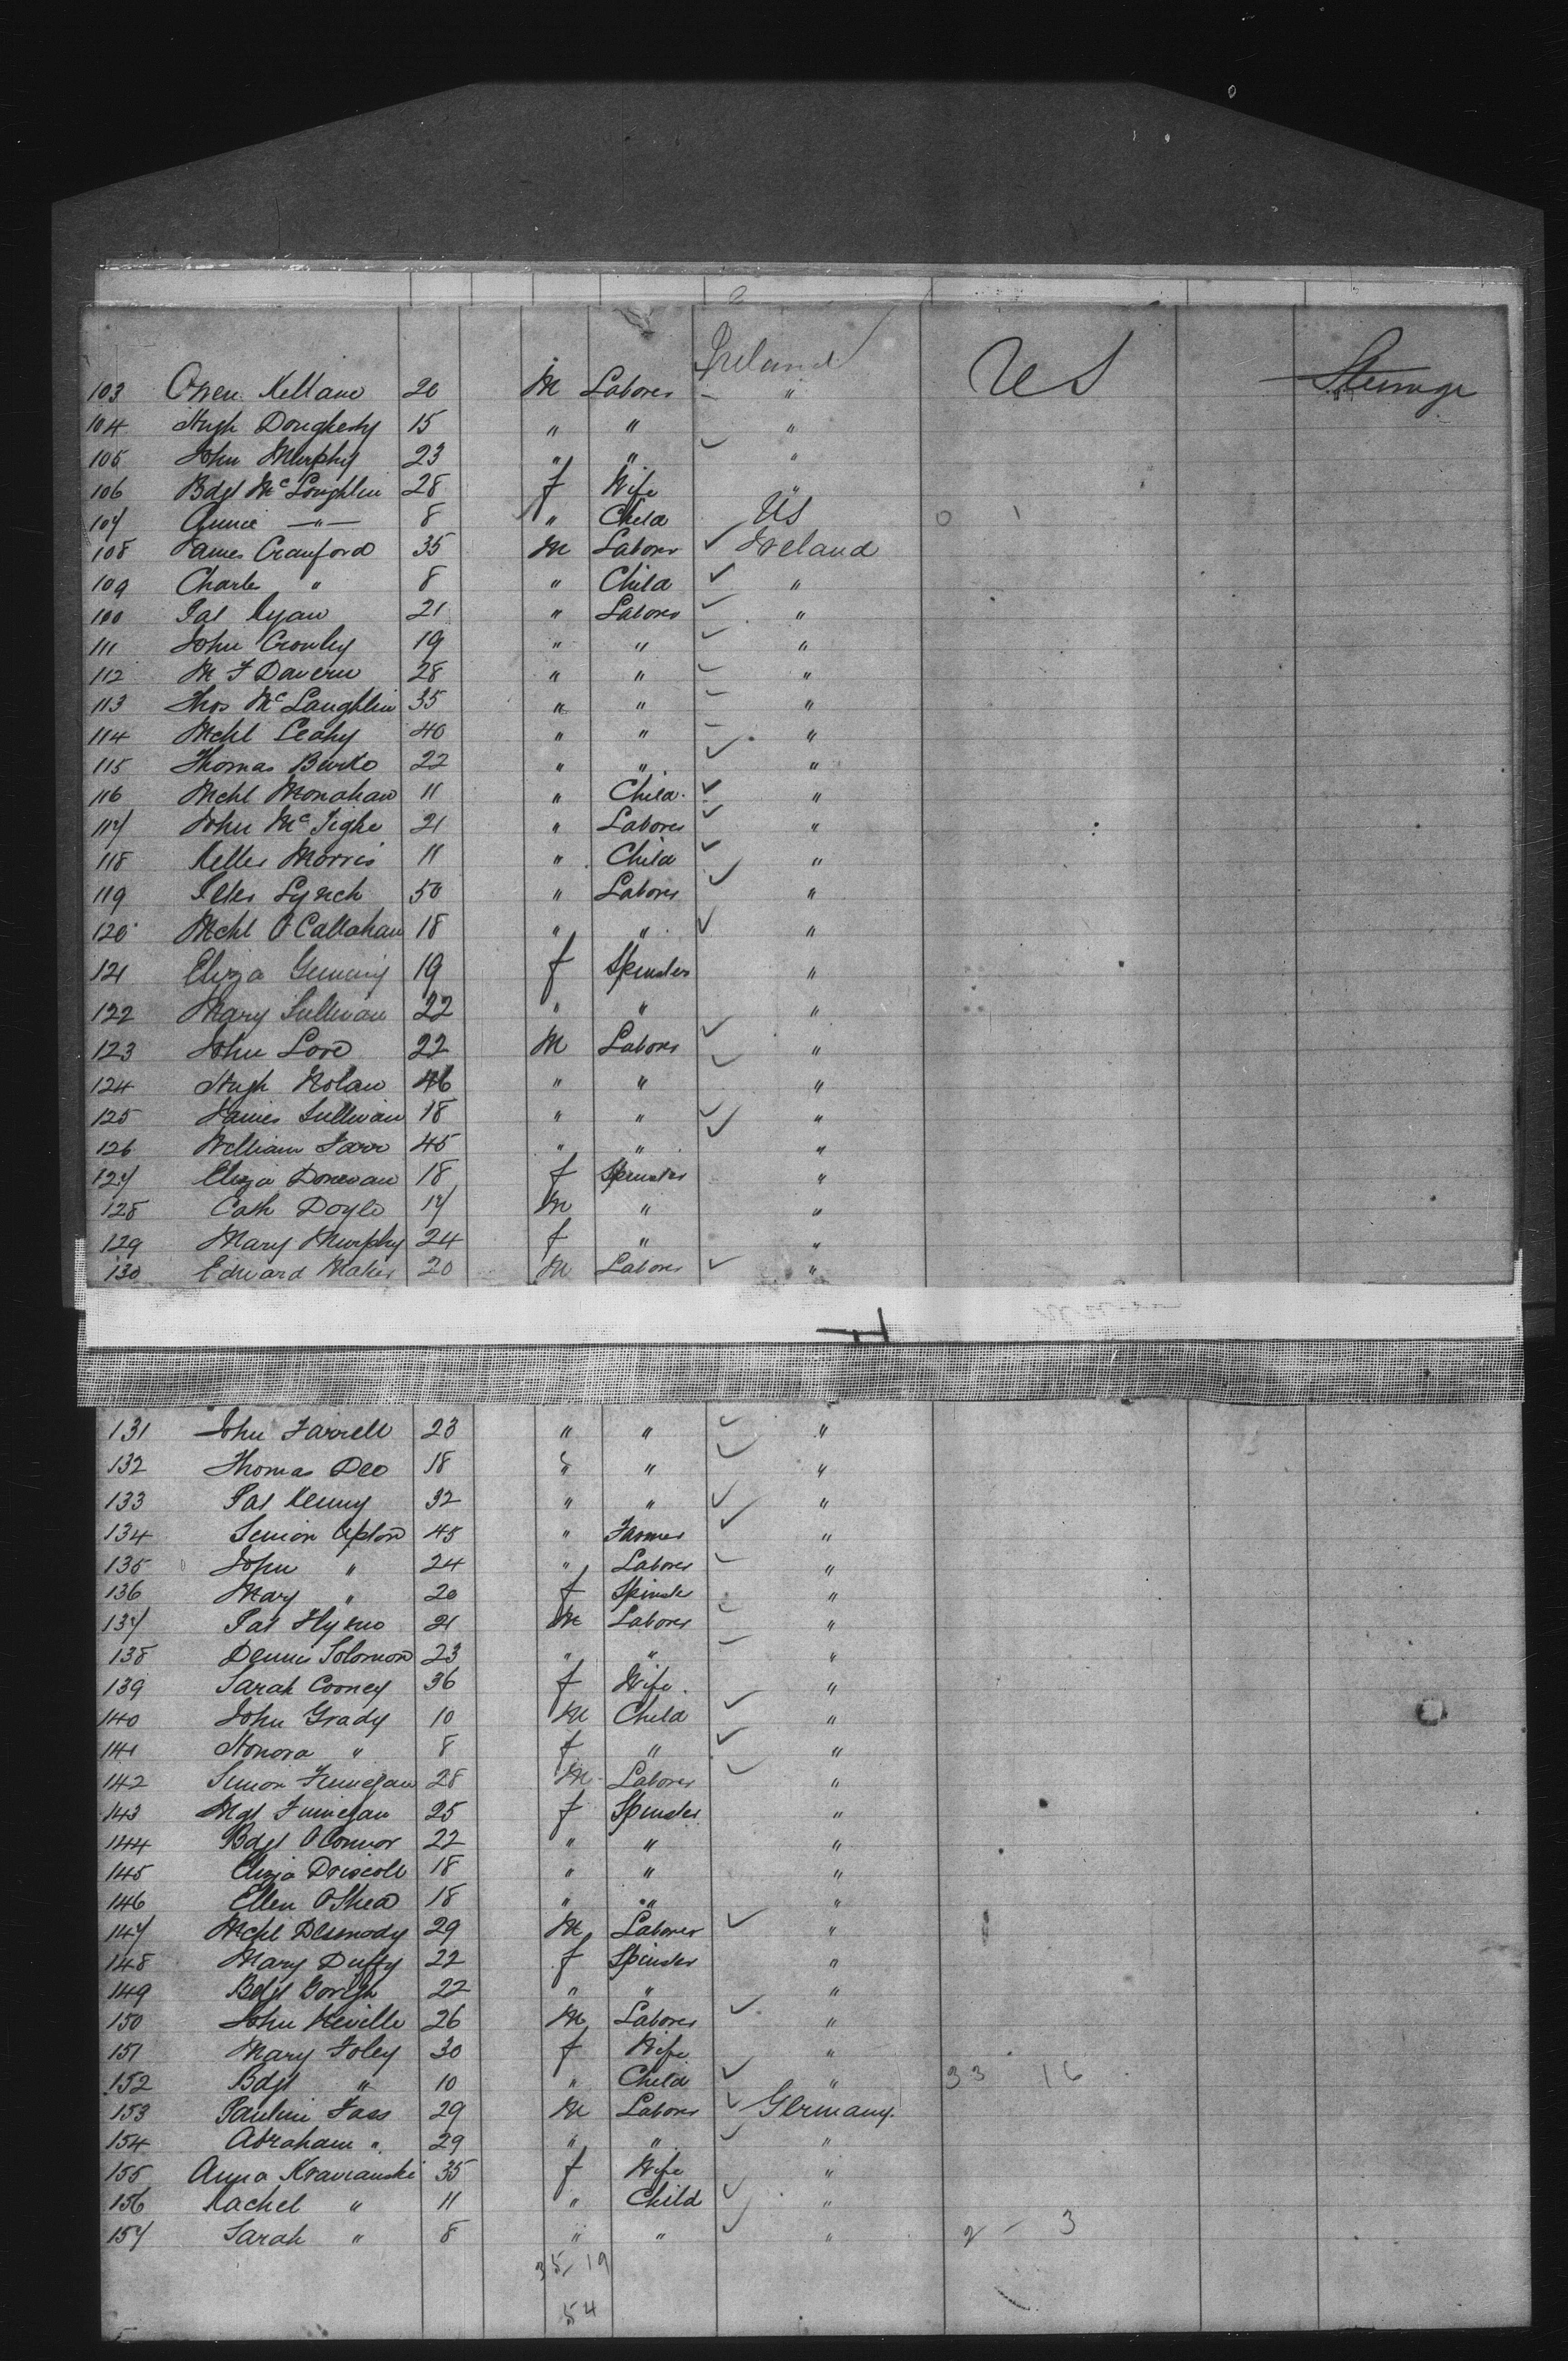 Ireland
103 Owen Kellane 20 M Laborer – " US Steerage
104 Hugh Dougherty 15 " " "
105 John Murphy 23 " " ✓ "
106 Bdgt McLoughlin 28 f Wife "
107 Annie —"— 8 " Child US 0 1
108 James Crawford 35 M Laborer ✓ Ireland
109 Charle " 8 " Child ✓ "
100 Pat Ryan 21 " Laborer ✓ "
111 John Crowley 19 " " ✓ "
112 M F Davern 28 " " – "
113 Thos McLaughlin 35 " " – "
114 Mchl Leahy 40 " " – "
115 Thomas Burke 22 " " ✓ "
116 Mchl Monahan 11 " Child ✓ "
117 John McTighe 21 " Laborer ✓ "
118 Morris 11 " Child ✓ "
119 Peter Lynch 50 " Laborer ✓ "
120 Mchl O'Callahan 18 " " ✓ "
121 Eliza 19 f Spinster "
122 Mary Sullivan 22 " " "
123 John Lord 22 M Laborer ✓ "
124 Hugh Nolan 46 " " ✓ "
125 James Sullivan 18 " " ✓ "
126 William Farr 45 " " ✓ "
127 Eliza Donovan 18 f Spinster "
128 Cath Doyle 17 M " "
129 Mary Murphy 24 f " "
130 Edward Maher 20 M Laborer ✓ "
131 John Farrell 23 " " ✓ "
132 Thomas Deo 18 " " ✓ "
133 Pat Kenny 32 " " ✓ "
134 Simon Upton 45 " Farmer ✓ "
135 John " 24 " Laborer – "
136 Mary " 20 f Spinster "
137 Pat Flynn 21 M Laborer – "
138 Dennis Solomon 23 " " – "
139 Sarah Cooney 36 f Wife "
140 John Grady 10 M Child ✓ "
141 Honora " 8 f " ✓ "
142 Simon Finnegan 28 M Laborer ✓ "
143 Mgt Finnegan 25 f Spinster "
144 Bdgt O'Connor 22 " " "
145 Eliza Driscoll 18 " " "
146 Ellen O'Shea 18 " " "
147 Mchl Desmody 29 M Laborer ✓ "
148 Mary Duffy 22 f Spinster "
149 Bdgt 22 " " "
150 John Neville 26 M Laborer ✓ "
151 Mary Foley 30 f Wife "
152 Bdgt " 10 " Child ✓ " 33 16
153 Pauline Fass 29 M Laborer ✓ Germany
154 Abraham " 29 " " ✓ "
155 Anna Kravianski 35 f Wife "
156 Rachel " 11 " Child ✓ "
157 Sarah " 8 " " ✓ " 2 – 3
35/19
54